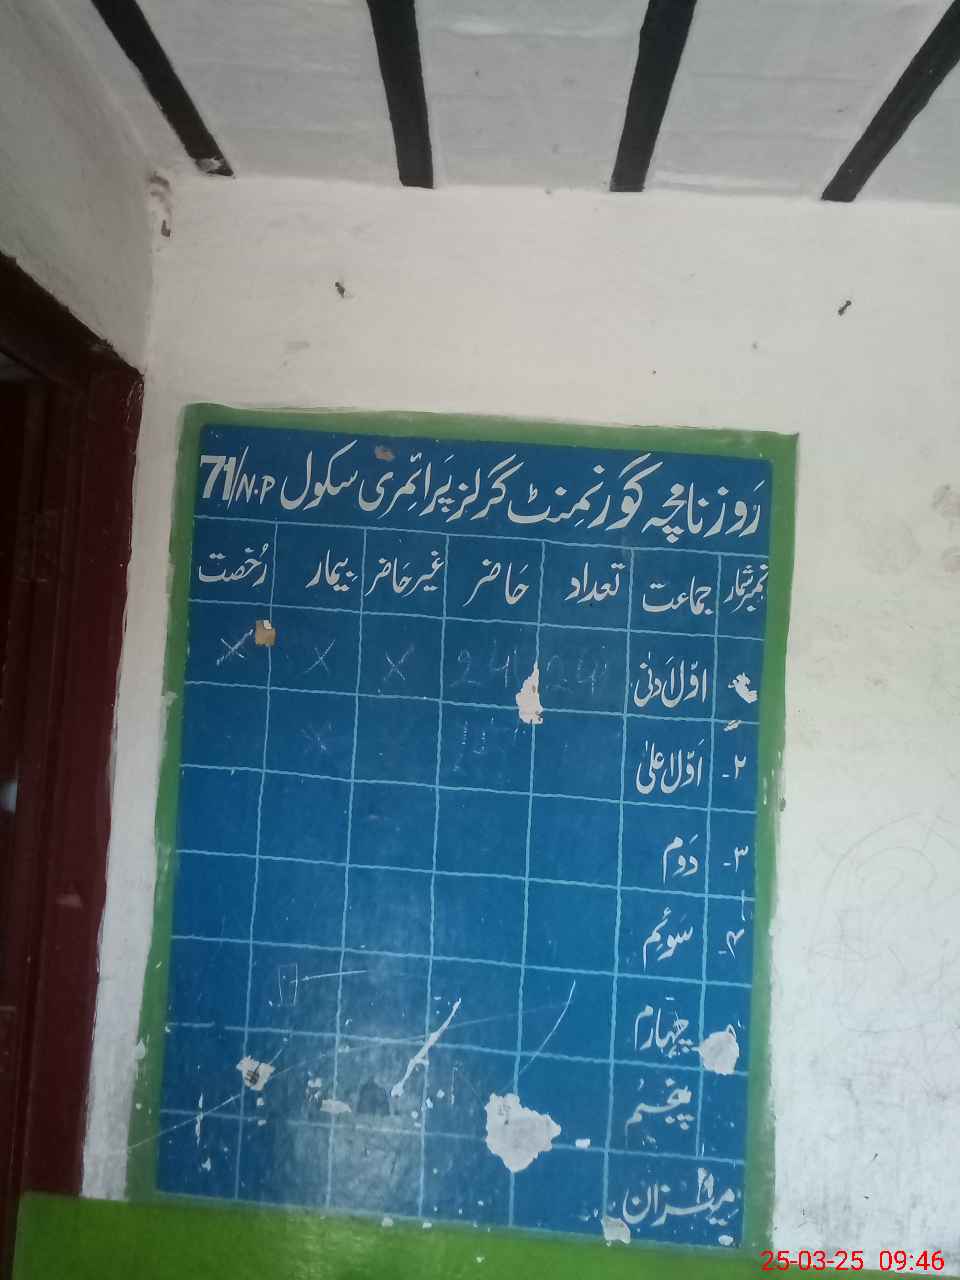 روزنامچہ گورنمنٹ گرلز پرائمری سکول 71/N.P
نمبرشمار جماعت تعداد حاضر غیر حاضر بیمار رخصت
اوّل ادنیٰ 24 24 X X X
۲- اوّل اعلیٰ X
۳- دوم
۴- سوئم
چہارم
پنجم
میزان
25-03-25 09:46